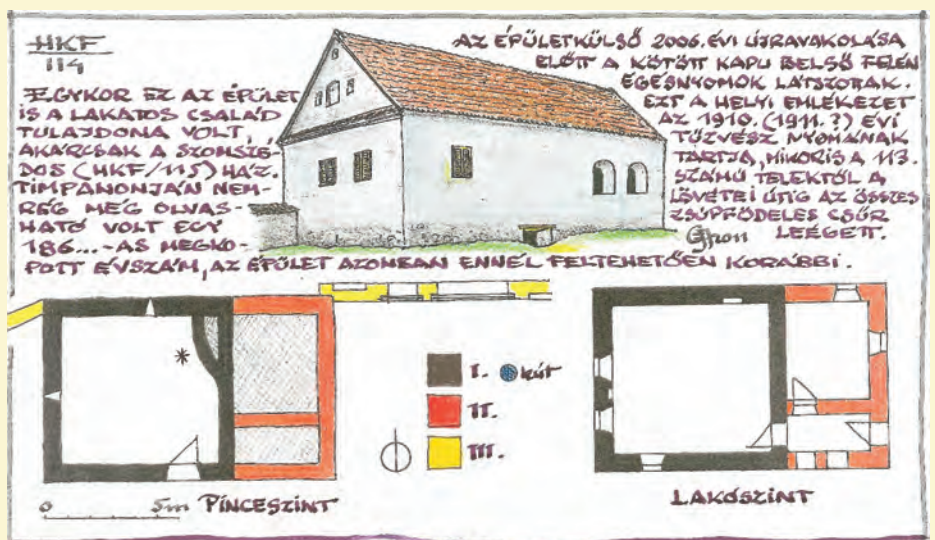 HKF
114
EGYKOR EZ AZ ÉPÜLET
IS A LAKATOS CSALÁD
TULAJDONA VOLT,
AKÁRCSAK A SZOMSZÉ-
DOS (HKF/115) HÁZ.
TIMPANONJÁN NEM-
RÉG MÉG OLVAS-
HATÓ VOLT EGY
186...-AS MEGKO-
POTT ÉVSZÁM, AZ ÉPÜLET AZONBAN ENNÉL FELTEHETŐEN KORÁBBI.
AZ ÉPÜLETKÜLSŐ 2006. ÉVI ÚJRAVAKOLÁSA
ELŐTT A KÖTÖTT KAPU BELSŐ FELÉN
ÉGÉSNYOMOK LÁTSZOTAK.
EZT A HELYI EMLÉKEZET
AZ 1910. (1911. ?) ÉVI
TŰZVÉSZ NYOMÁNAK
TARTJA, MIKORIS A 113.
SZÁMÚ TELEKTŐL A
LÖVÉTEI ÚTIG AZ ÖSSZES
ZSÚPFÖDELES CSŰR
LEÉGETT.
I. kút
II.
III.
0 5m PINCESZINT
LAKÓSZINT